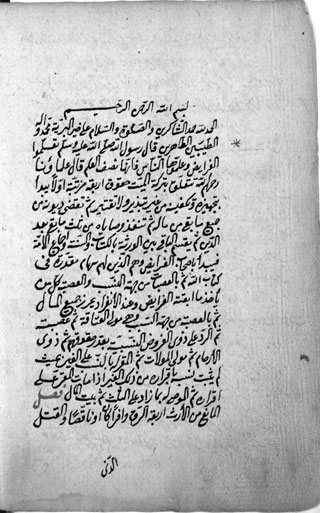 بسم الله الرحمن الرحيم
الحمد لله حمد الشاكرين والصلوة والسلام على خير البرية محمد وآله
الطيبين الطاهرين قال رسول الله صلى الله عليه وسلم تعلموا
الفرايض وعلموها الناس فانها نصف العلم قال علماؤنا
رحمهم الله تتعلق بتركة الميت حقوق اربعة مرتبة الاول يبدأ
بتجهيزه وتكفينه من غير تبذير ولا تقتير ثم تقضى ديونه من
جميع ما بقى من ماله ثم تنفذ وصاياه من ثلث ما بقى بعد
الدين ثم يقسم الباقى بين الورثة بالكتاب والسنة واجماع الامة
فيبدأ باصحاب الفرايض وهم الذين لهم سهام مقدرة فى
كتاب الله ثم بالعصبات من جهة النسب والعصبة كل من
يأخذ ما ابقته الفرايض وعند الانفراد يحرز جميع المال
ثم بالعصبة من جهة السبب وهو مولى العتاقة ثم عصبته
ثم الرد على ذوى الفروض النسبية بقدر حقوقهم ثم ذوى
الارحام ثم مولى الموالات ثم المقر له بالنسب على الغير بحيث
لم يثبت نسبه باقراره من ذلك الغير اذا مات المقر على
اقراره ثم الموصى له بما زاد على الثلث ثم بيت المال فصل
المانع من الارث اربعة الرق وافرا كان او ناقصا والقتل
الذى